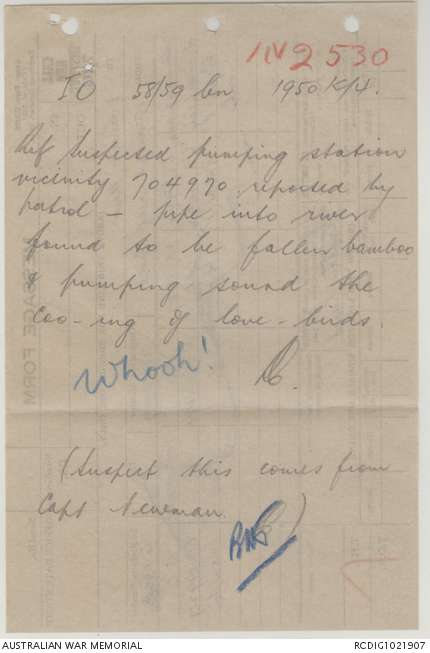 IN 2530
IO 58/59 bn 1950 K/4.
Ref suspected pumping station
vicinity 704970 reported by
patrol - pipe into river
found to be fallen bamboo
& pumping sound the
coo-ing of love-birds.
Whooh!
(Suspect this comes from
Capt Newman.)
AUSTRALIAN WAR MEMORIAL
RCDIG1021907